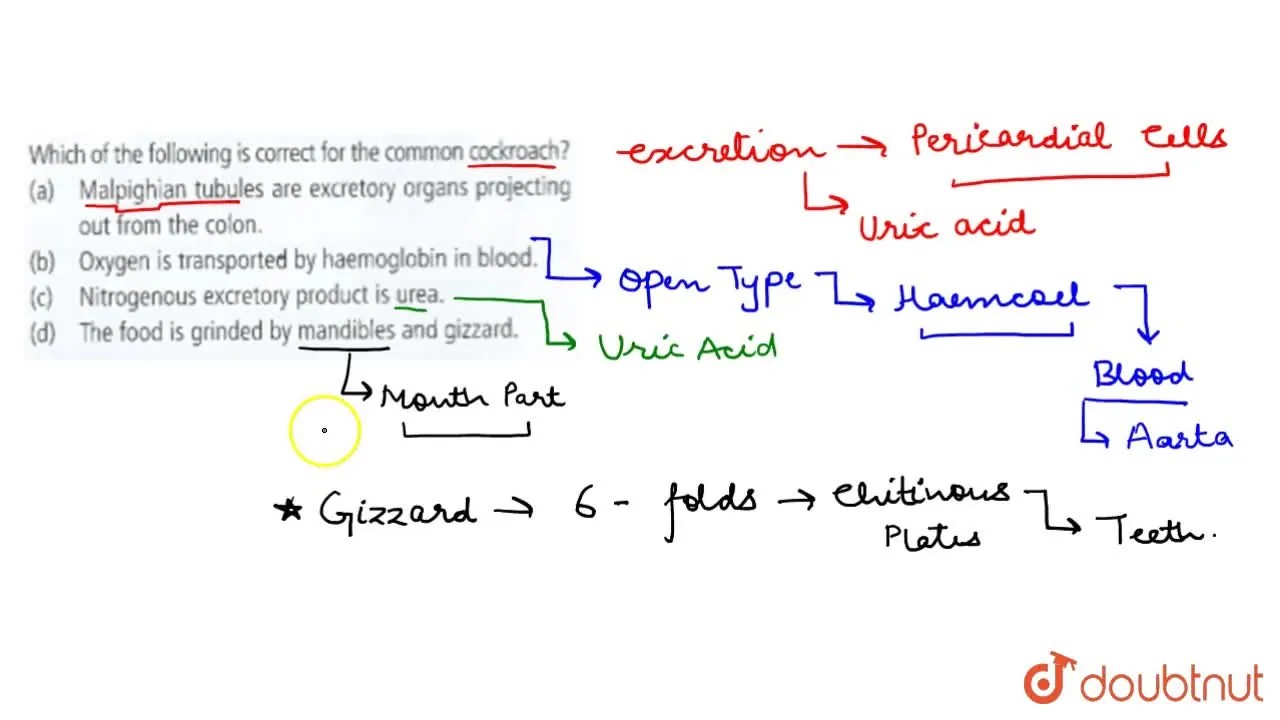 Which of the following is correct for the common cockroach?
(a) Malpighian tubules are excretory organs projecting
out from the colon.
(b) Oxygen is transported by haemoglobin in blood.
(c) Nitrogenous excretory product is urea.
(d) The food is grinded by mandibles and gizzard.
excretion → Pericardial Cells
Uric acid
Open Type
Haemcoel
Uric Acid
Blood
Mouth Part
Aarta
* Gizzard → 6 - folds → Chitinous
Plates
Teeth.
doubtnut